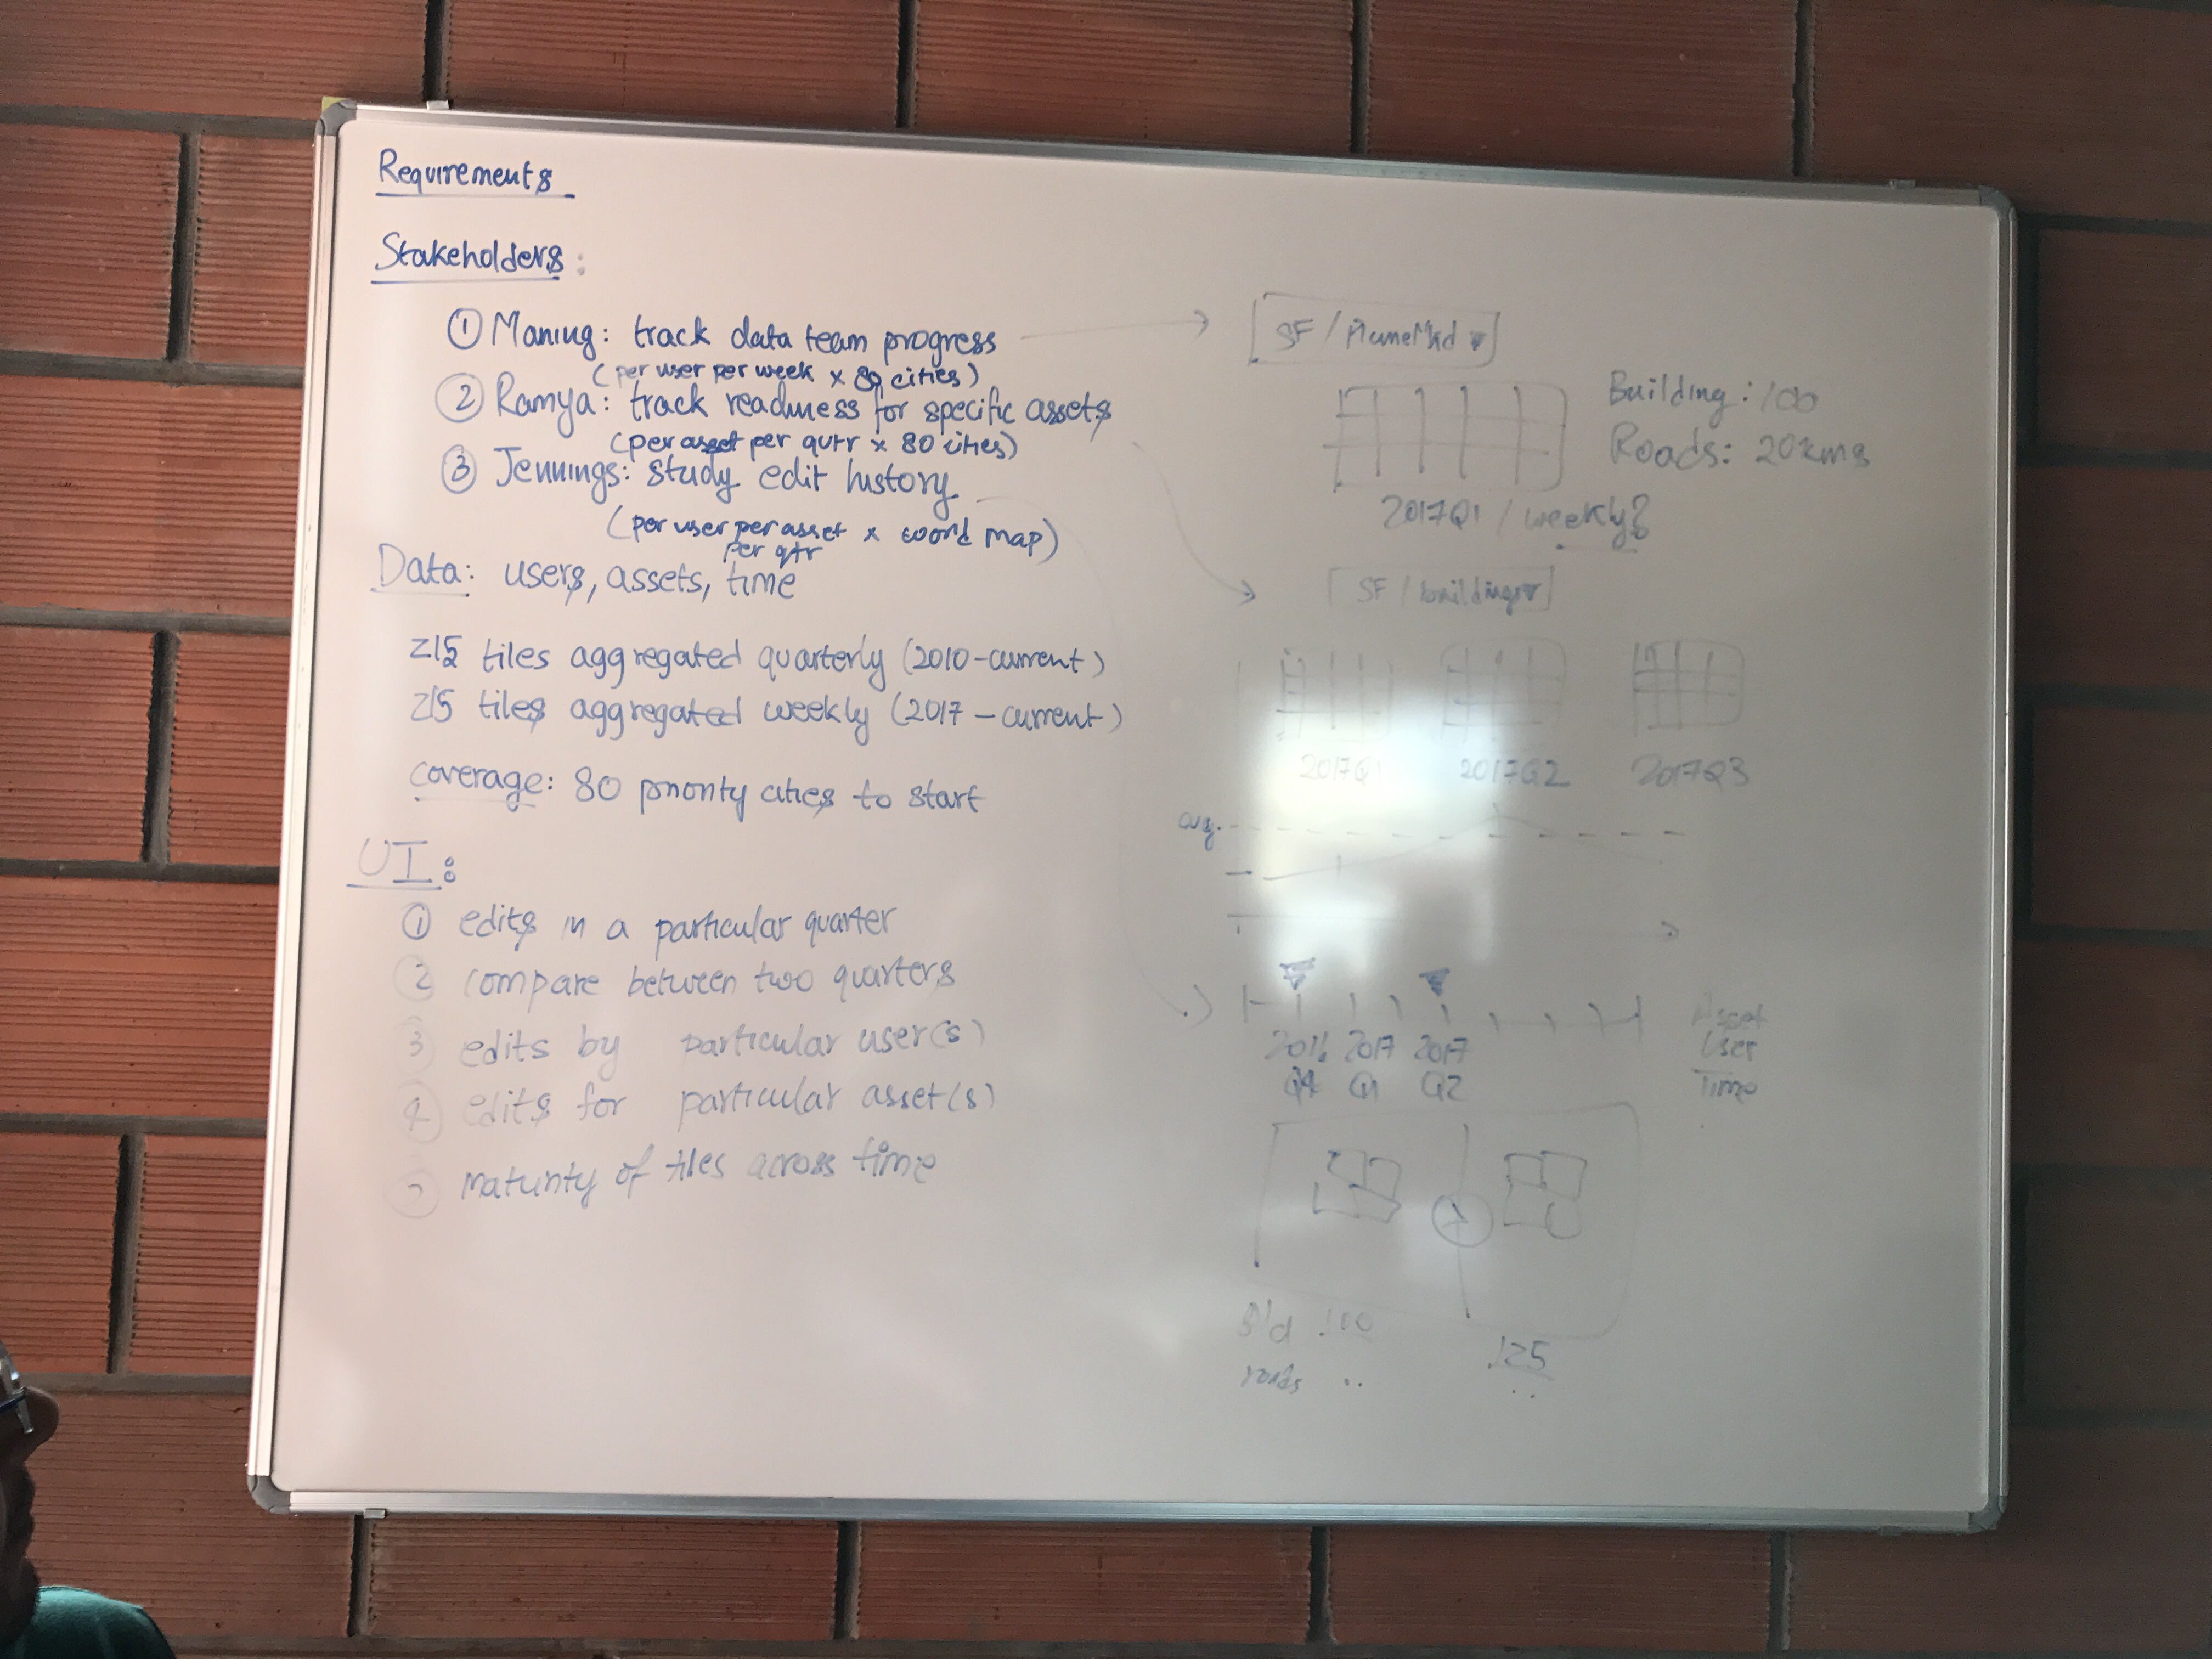 Requirements
Stakeholders:
① Maning: track data team progress
(per user per week x 80 cities)
② Ramya: track readiness for specific assets
(per asset per qutr x 80 cities)
③ Jennings: study edit history
(per user per asset x woord map)
per qtr
Data: users, assets, time
Z15 tiles aggregated quarterly (2010-current)
Z15 tiles aggregated weekly (2017-current)
coverage: 80 priority cities to start
UI:
① edits in a particular quarter
② compare between two quarters
③ edits by particular user(s)
④ edits for particular asset(s)
maturity of tiles across time
SF /
Building: 100
Roads: 20kms
2017Q1 / weekly?
SF / buildings
2017Q1 2017Q2 2017Q3
avg.
2016 2017 2017
Q4 Q1 Q2
Asset
User
Time
125
roads